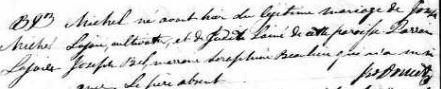 B 9 Michel né avant hier du légitime mariage de Joseph
Michel Lajoie, cultivateur, et de Judith Lainé de cette paroisse. Parrain
Lajoie Joseph marraine Josephine Beaulieu qui n'a su
signer. Le père absent.